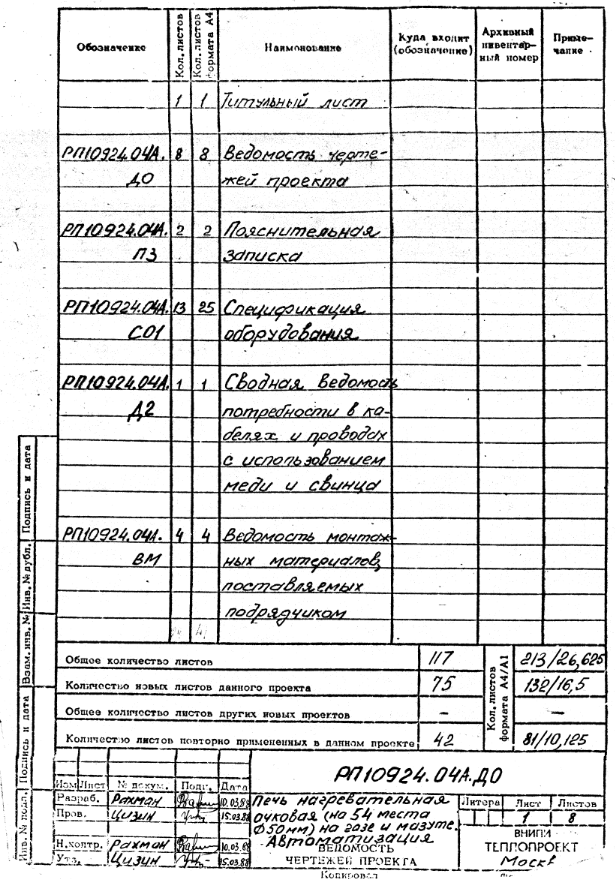 Обозначение Кол. листов Кол. листов формата А4 Наименование Куда входит (обозначение) Архивный инвентарный номер Примечание
1 1 Титульный лист
РП10924.04А. 8 8 Ведомость черте-
ДО жей проекта
РП10924.04А. 2 2 Пояснительная
ПЗ записка
РП10924.04А. 13 25 Спецификация
СО1 оборудования
РП10924.04А. 1 1 Сводная ведомость
Д2 потребности в ка-
белях и проводах
с использованием
меди и свинца
РП10924.04А. 4 4 Ведомость монтаж-
ВМ ных материалов,
поставляемых
подрядчиком
Общее количество листов 117 Кол. листов формата А4/А1 213/26,625
Количество новых листов данного проекта 75 132/16,5
Общее количество листов других новых проектов — —
Количество листов повторно примененных в данном проекте 42 81/10,125
РП10924.04А.ДО
Изм Лист № докум. Подп. Дата
Разраб. Рахман 10.03.88 Печь нагревательная Литера Лист Листов
Пров. Цизин 15.03.88 очковая (на 54 места 1 8
Ø50мм) на газе и мазуте.
Н.контр. Рахман 10.03.88 Автоматизация ВНИПИ
Утв. Цизин 15.03.88 ВЕДОМОСТЬ ТЕПЛОПРОЕКТ
ЧЕРТЕЖЕЙ ПРОЕКТА
Копировал
Инв. № подл. Подпись и дата Взам. инв. № Инв. № дубл. Подпись и дата